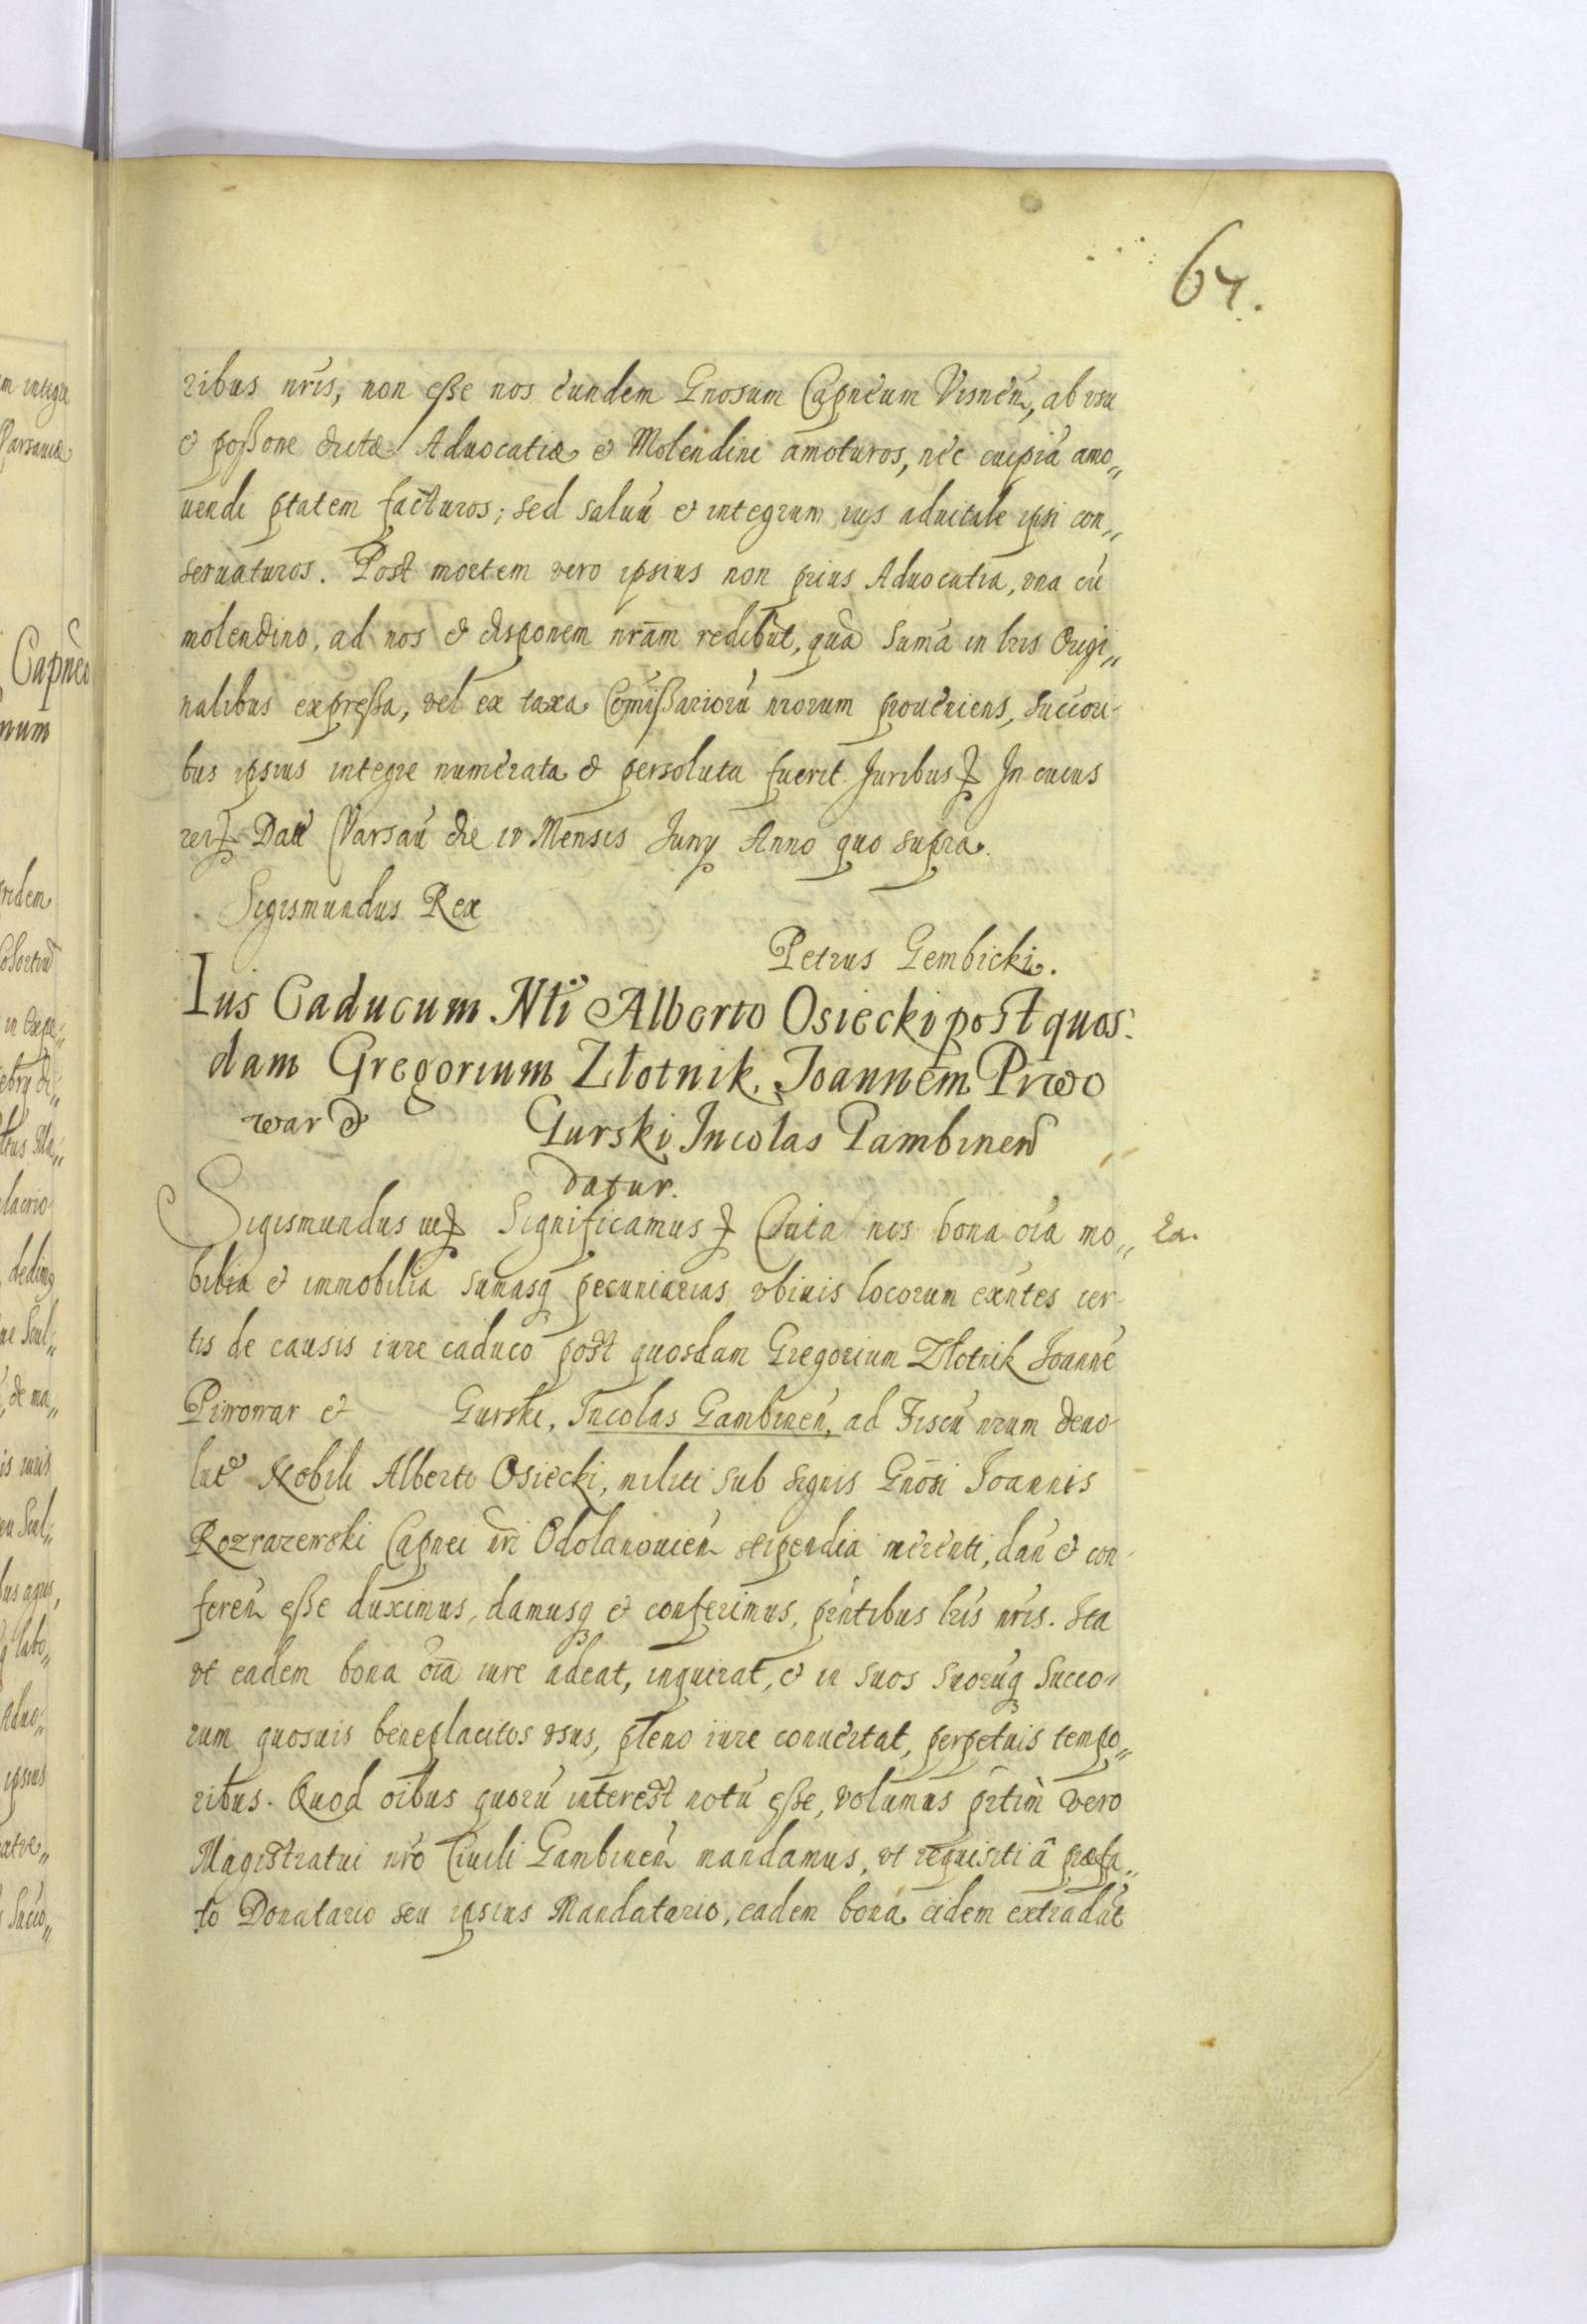 64.
ribus nris, non esse nos eundem Gnosum Capneum Visnen, ab usu
& possone dictæ Aduocatiæ & Molendini amoturos, nec cuipiã amo„
uendi ptatem facturos; sed saluũ & integrum ius aduitale ipsi con„
seruaturos. Post mortem vero ipsius non prius Aduocatia, vna cũ
molendino, ad nos & disponem nram redibũt, quã sumã in lris Origi„
nalibus expressa, vel ex taxa Comissariorũ nrorum proueniens, succori-
bus ipsius integre numerata & persoluta fuerit. Juribus In cuius
rei Dat Varsau die IV Mensis Juny Anno quo supra.
Sigismundus Rex
Petrus Gembicki.
Ius Caducum Nli Alberto Osiecki post quos-
dam Gregorium Złotnik, Joannem Piwo
war & Gurski Incolas Gambinen
datur.
Sigismundus Significamus Quia nos bona oia mo„
Ea.
bilia & immobilia sumasq pecuniarias vbiuis locorum exntes cer-
tis de causis iure caduco post quosdam Gregorium Złotnik Joannẽ
Piwowar & Gurski, Incolas Gambinen, ad Fiscũ nrum deuo-
luta Nobili Alberto Osiecki, militi sub signis Gnosi Joannis
Rozrazewski Capnei nri Odolanouien stipendia merenti, dan & con-
feren esse duximus, damusq & conferimus, pntibus lris nris. Ita
vt eadem bona oia iure adeat, inquirat, & in suos suorũq Succo-
rum quosuis beneplacitos vsus, pleno iure conuertat, perpetuis tempo„
ribus. Quod oibus quorũ interest notũ esse, volumus prtim vero
Magistratui nro Ciuili Gambinen mandamus, vt requisiti â præfa„
to Donatario seu ipsius Mandatario, eadem bona eidem extradãt